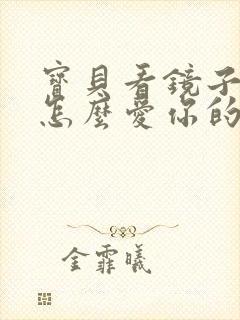 寶貝看鏡子
怎麼愛你的
金霏曦